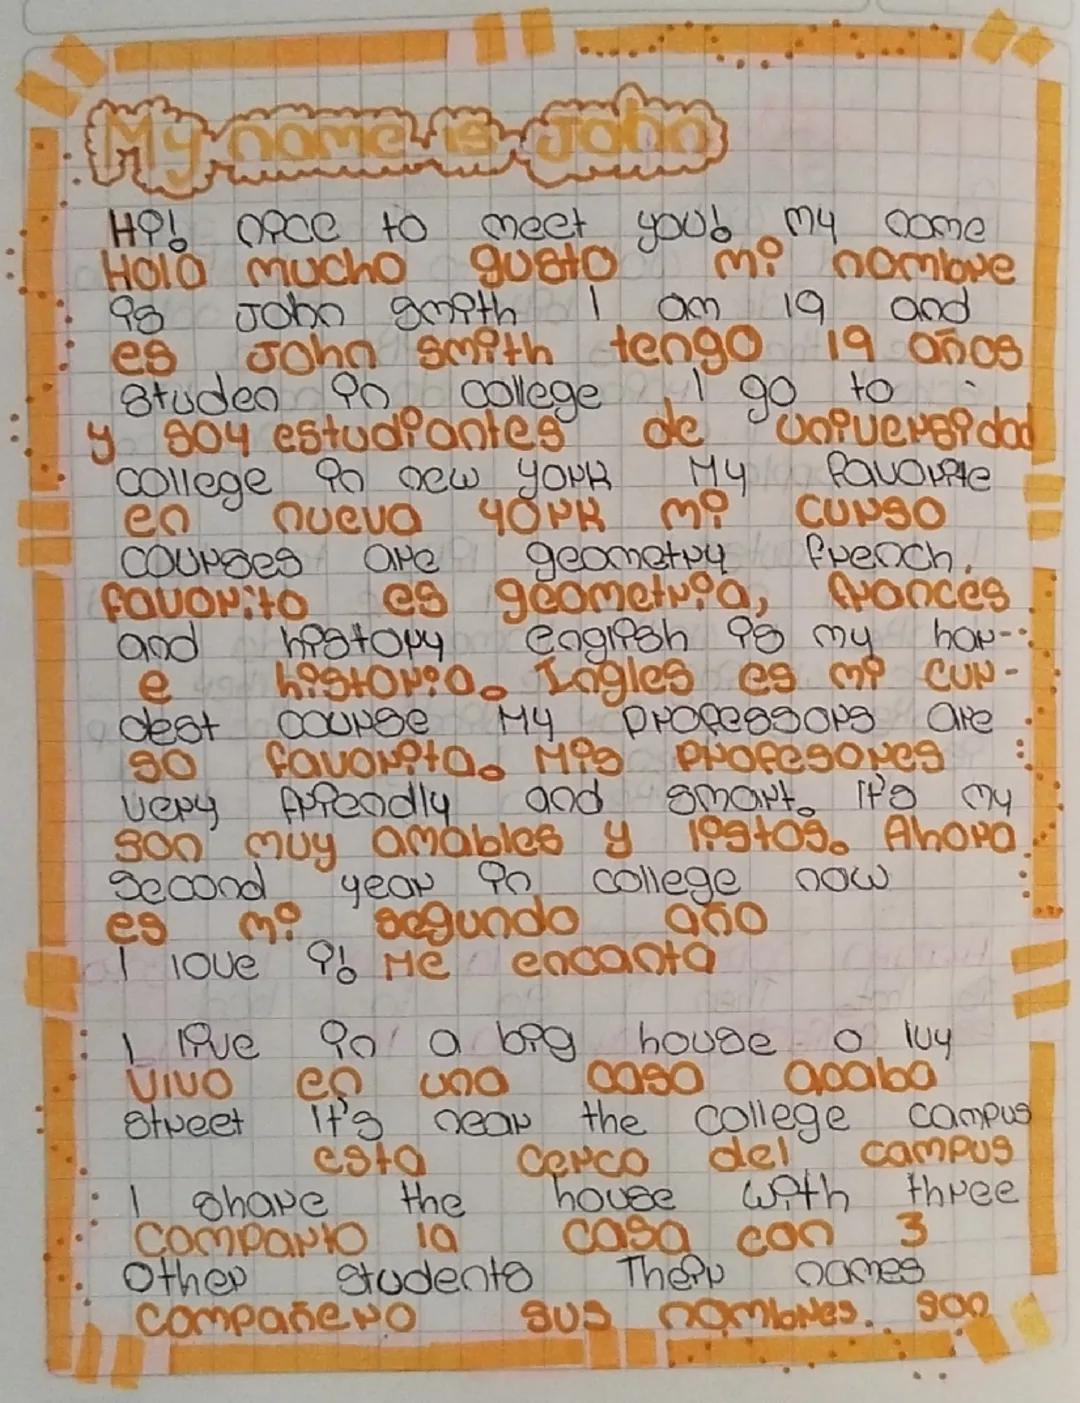 My name is John
Hi! nice to meet you! my name
Hola mucho gusto mi nombre
is John smith I am 19 and
es John smith tengo 19 años
studen in college I go to
y soy estudiantes de universidad
college in new york My favorite
en nueva york mi curso
courses are geometry french,
favorito es geometria, frances
and history english is my har-
e historia. Ingles es mi cur-
dest course My professors are
so favorita. Mis profesores
very friendly and smart. It's my
son muy amables y listos. Ahora
Second year in college now
es mi segundo año
I love i! Me encanta
I live in a big house o luy
vivo en una casa
street It's near the college campus
esta cerca del campus
I share the house with three
Comparto la casa con 3
Other students Their names
compañero sus nombres. son